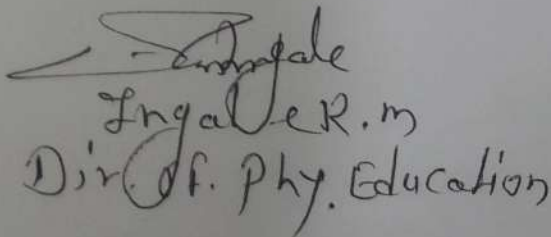 Ingale R.m
Dir. of. Phy. Education